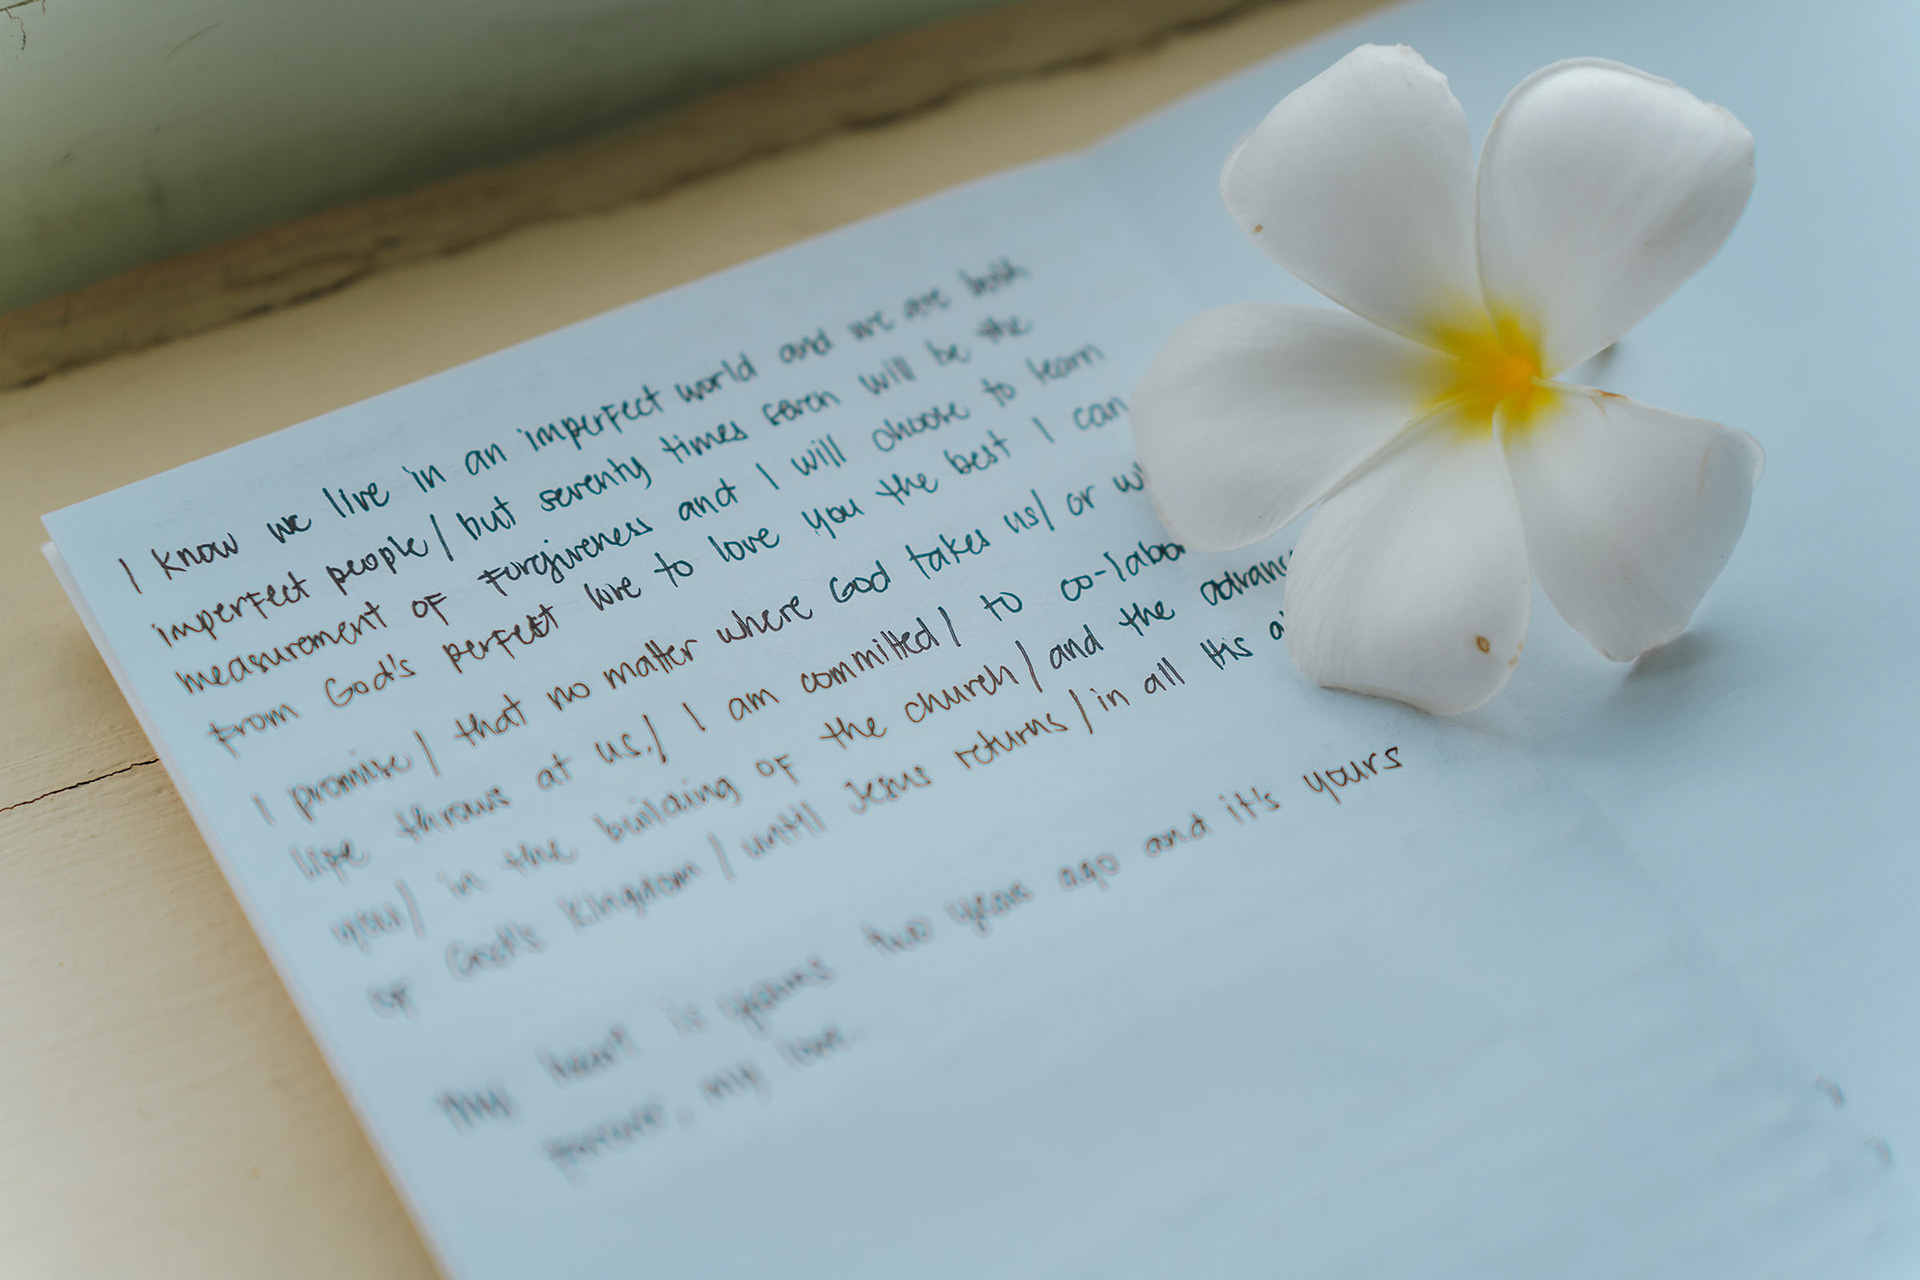 I know we live in an imperfect world and we are both
imperfect people / but seventy times seven will be the
measurement of forgiveness and I will choose to learn
from God's perfect love to love you the best I can
I promise / that no matter where God takes us / or
life throws at us. / I am committed / to co-labor
you / in the building of the church / and the
of God's kingdom / until Jesus returns / in all His
My heart is yours two years ago and it's yours
forever, my love.